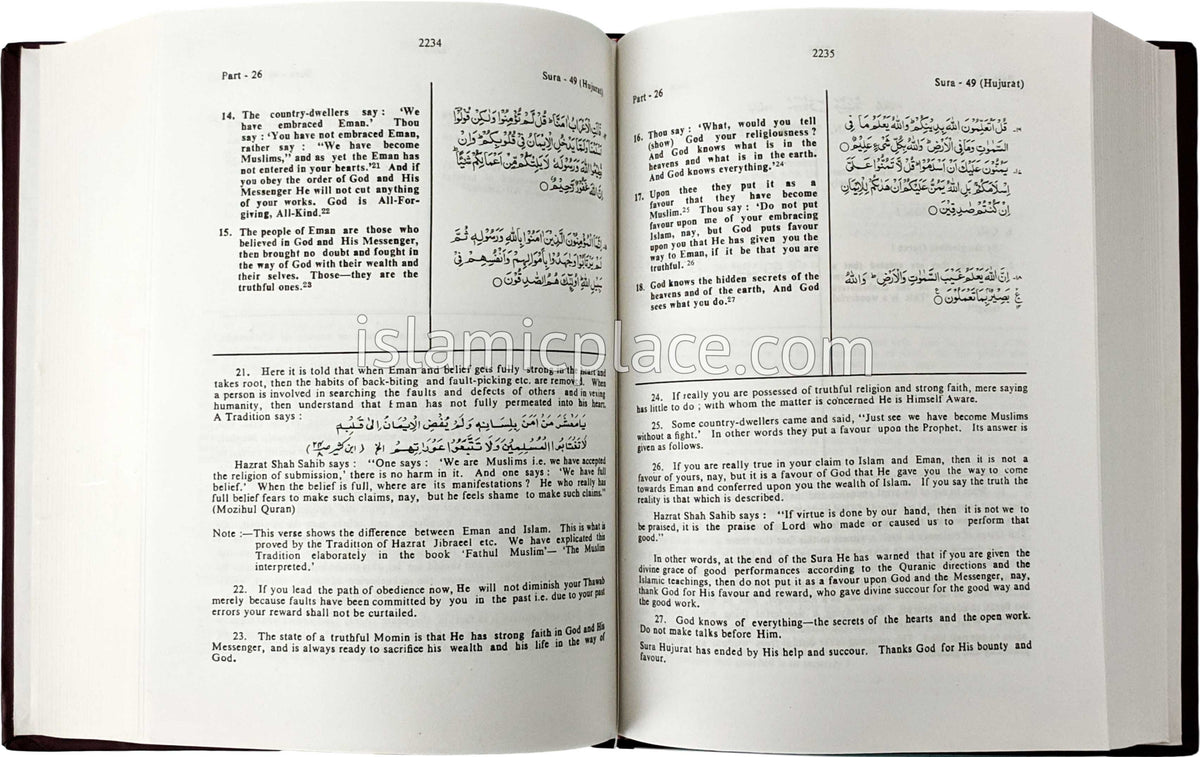 2234
Part - 26
Sura - 49 (Hujurat)
14. The country-dwellers say : ‘We
have embraced Eman.’ Thou
say : ‘You have not embraced Eman,
rather say : “We have become
Muslims,” and as yet the Eman has
not entered in your hearts.’21 And if
you obey the order of God and His
Messenger He will not cut anything
of your works. God is All-For-
giving, All-Kind.22
15. The people of Eman are those who
believed in God and His Messenger,
then brought no doubt and fought in
the way of God with their wealth and
their selves. Those—they are the
truthful ones.23
قَالَتِ الْاَعْرَابُ اٰمَنَّا ؕ قُلْ لَّمْ تُؤْمِنُوْا وَلٰكِنْ قُوْلُوْٓا
اَسْلَمْنَا وَلَمَّا يَدْخُلِ الْاِيْمَانُ فِيْ قُلُوْبِكُمْ ؕ وَاِنْ
تُطِيْعُوا اللّٰهَ وَرَسُوْلَهٗ لَا يَلِتْكُمْ مِّنْ اَعْمَالِكُمْ شَيْـًٔا ؕ
اِنَّ اللّٰهَ غَفُوْرٌ رَّحِيْمٌ ○
اِنَّمَا الْمُؤْمِنُوْنَ الَّذِيْنَ اٰمَنُوْا بِاللّٰهِ وَرَسُوْلِهٖ ثُمَّ
لَمْ يَرْتَابُوْا وَجَاهَدُوْا بِاَمْوَالِهِمْ وَاَنْفُسِهِمْ فِيْ
سَبِيْلِ اللّٰهِ ؕ اُولٰٓئِكَ هُمُ الصّٰدِقُوْنَ ○
21. Here it is told that when Eman and belief gets fully strong in the heart and
takes root, then the habits of back-biting and fault-picking etc. are removed. When
a person is involved in searching the faults and defects of others and in vexing
humanity, then understand that Eman has not fully permeated into his heart.
A Tradition says :
يا معشر من امن بلسانه ولم يفض الايمان الى قلبه
لا تغتابوا المسلمين ولا تتبعوا عوراتهم الخ (ابن کثیر
Hazrat Shah Sahib says : “One says : ‘We are Muslims i.e. we have accepted
the religion of submission,’ there is no harm in it. And one says : ‘We have full
belief.’ When the belief is full, where are its manifestations ? He who really has
full belief fears to make such claims, nay, but he feels shame to make such claims.”
(Mozihul Quran)
Note :—This verse shows the difference between Eman and Islam. This is what is
proved by the Tradition of Hazrat Jibraeel etc. We have explicated this
Tradition elaborately in the book ‘Fathul Muslim’— ‘The Muslim
interpreted.’
22. If you lead the path of obedience now, He will not diminish your Thawab
merely because faults have been committed by you in the past i.e. due to your past
errors your reward shall not be curtailed.
23. The state of a truthful Momin is that He has strong faith in God and His
Messenger, and is always ready to sacrifice his wealth and his life in the way of
God.
2235
Part - 26
Sura - 49 (Hujurat)
16. Thou say : ‘What, would you tell
(show) God your religiousness ?
And God knows what is in the
heavens and what is in the earth.
And God knows everything.’24
17. Upon thee they put it as a
favour that they have become
Muslim.25 Thou say : ‘Do not put
favour upon me of your embracing
Islam, nay, but God puts favour
upon you that He has given you the
way to Eman, if it be that you are
truthful. 26
18. God knows the hidden secrets of the
heavens and of the earth, And God
sees what you do.27
قُلْ اَتُعَلِّمُوْنَ اللّٰهَ بِدِيْنِكُمْ ؕ وَاللّٰهُ يَعْلَمُ مَا فِي
السَّمٰوٰتِ وَمَا فِي الْاَرْضِ ؕ وَاللّٰهُ بِكُلِّ شَيْءٍ عَلِيْمٌ ○
يَمُنُّوْنَ عَلَيْكَ اَنْ اَسْلَمُوْا ؕ قُلْ لَّا تَمُنُّوْا عَلَيَّ
اِسْلَامَكُمْ ۚ بَلِ اللّٰهُ يَمُنُّ عَلَيْكُمْ اَنْ هَدٰىكُمْ لِلْاِيْمَانِ
اِنْ كُنْتُمْ صٰدِقِيْنَ ○
اِنَّ اللّٰهَ يَعْلَمُ غَيْبَ السَّمٰوٰتِ وَالْاَرْضِ ؕ وَاللّٰهُ
بَصِيْرٌۢ بِمَا تَعْمَلُوْنَ ○
24. If really you are possessed of truthful religion and strong faith, mere saying
has little to do ; with whom the matter is concerned He is Himself Aware.
25. Some country-dwellers came and said, “Just see we have become Muslims
without a fight.’ In other words they put a favour upon the Prophet. Its answer is
given as follows.
26. If you are really true in your claim to Islam and Eman, then it is not a
favour of yours, nay, but it is a favour of God that He gave you the way to come
towards Eman and conferred upon you the wealth of Islam. If you say the truth the
reality is that which is described.
Hazrat Shah Sahib says : “If virtue is done by our hand, then it is not we to
be praised, it is the praise of Lord who made or caused us to perform that
good.”
In other words, at the end of the Sura He has warned that if you are given the
divine grace of good performances according to the Quranic directions and the
Islamic teachings, then do not put it as a favour upon God and the Messenger, nay,
thank God for His favour and reward, who gave divine succour for the good way and
the good work.
27. God knows of everything—the secrets of the hearts and the open work.
Do not make talks before Him.
Sura Hujurat has ended by His help and succour. Thanks God for His bounty and
favour.
islamicplace.com